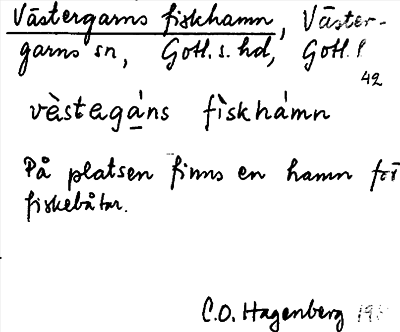 Västergarns fiskhamn, Väster-
garns sn, Gotl. s. hd, Gotl. l
42
vàstegá̱ns fìskhámn
På platsen finns en hamn för
fiskebåtar.
C.O. Hagenberg